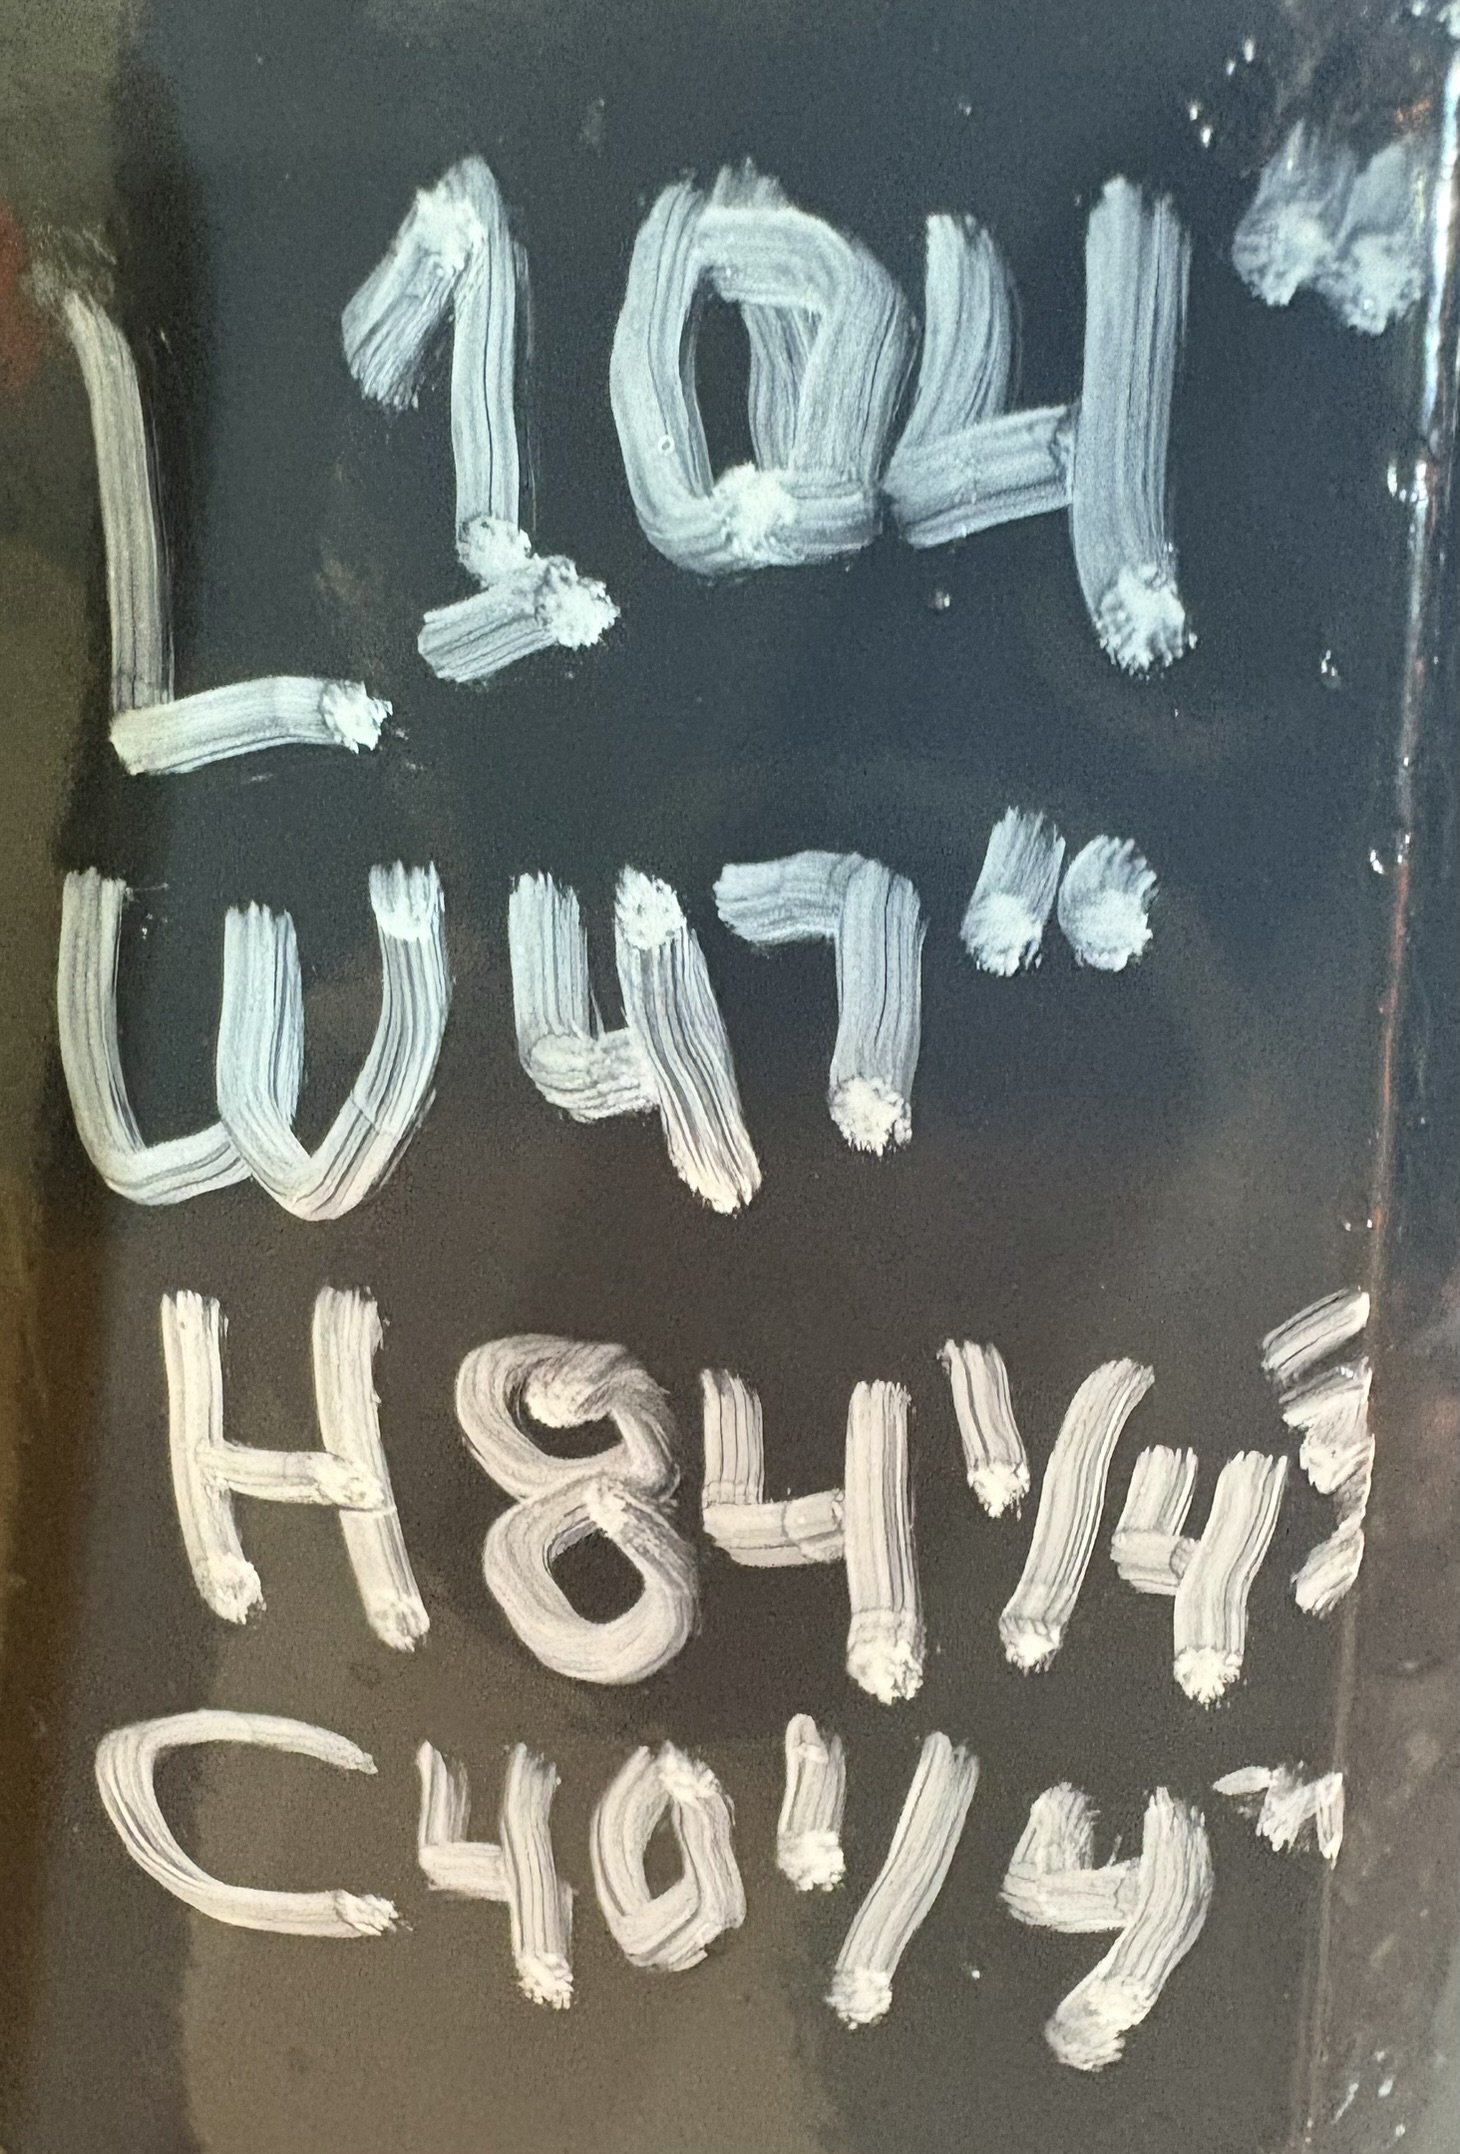 L 104"
W 47"
H 84 1/4"
C 40 1/4"